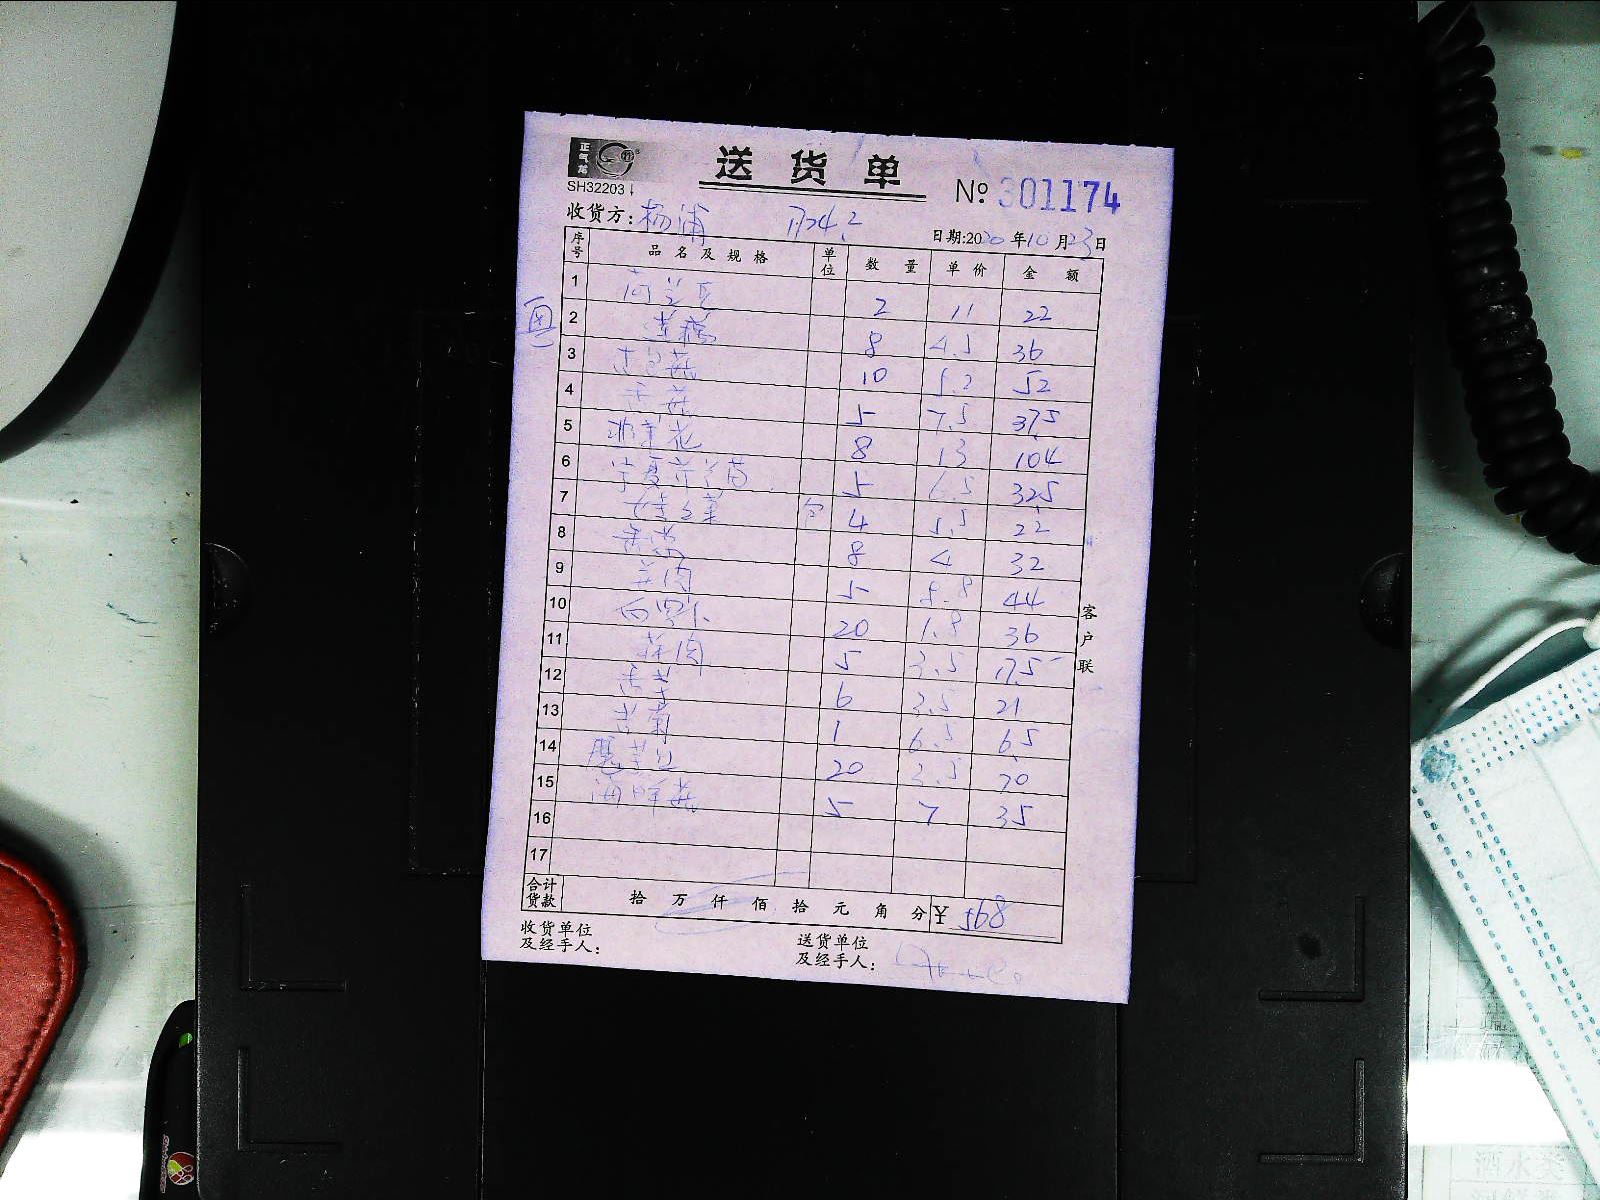 正气龙
送货单
SH32203
№ 301174
收货方: 杨浦
日期:2020年10月23日
序号 品名及规格 单位 数量 单价 金额
1 荷兰豆 2 11 22
2 莲藕 8 4.5 36
3 10 5.2 52
4 香菇 5 7.5 37.5
5 8 13 104
6 宁夏 5 6.5 32.5
7 包 4 5.5 22
8 8 4 32
9 肉 5 8.8 44
10 白萝卜 20 1.8 36
11 肉 5 3.5 17.5
12 香芹 6 3.5 21
13 1 6.5 6.5
14 20 3.5 70
15 海鲜菇 5 7 35
16
17
合计货款 拾 万 仟 佰 拾 元 角 分 ¥ 568
收货单位及经手人:
送货单位及经手人:
客户联